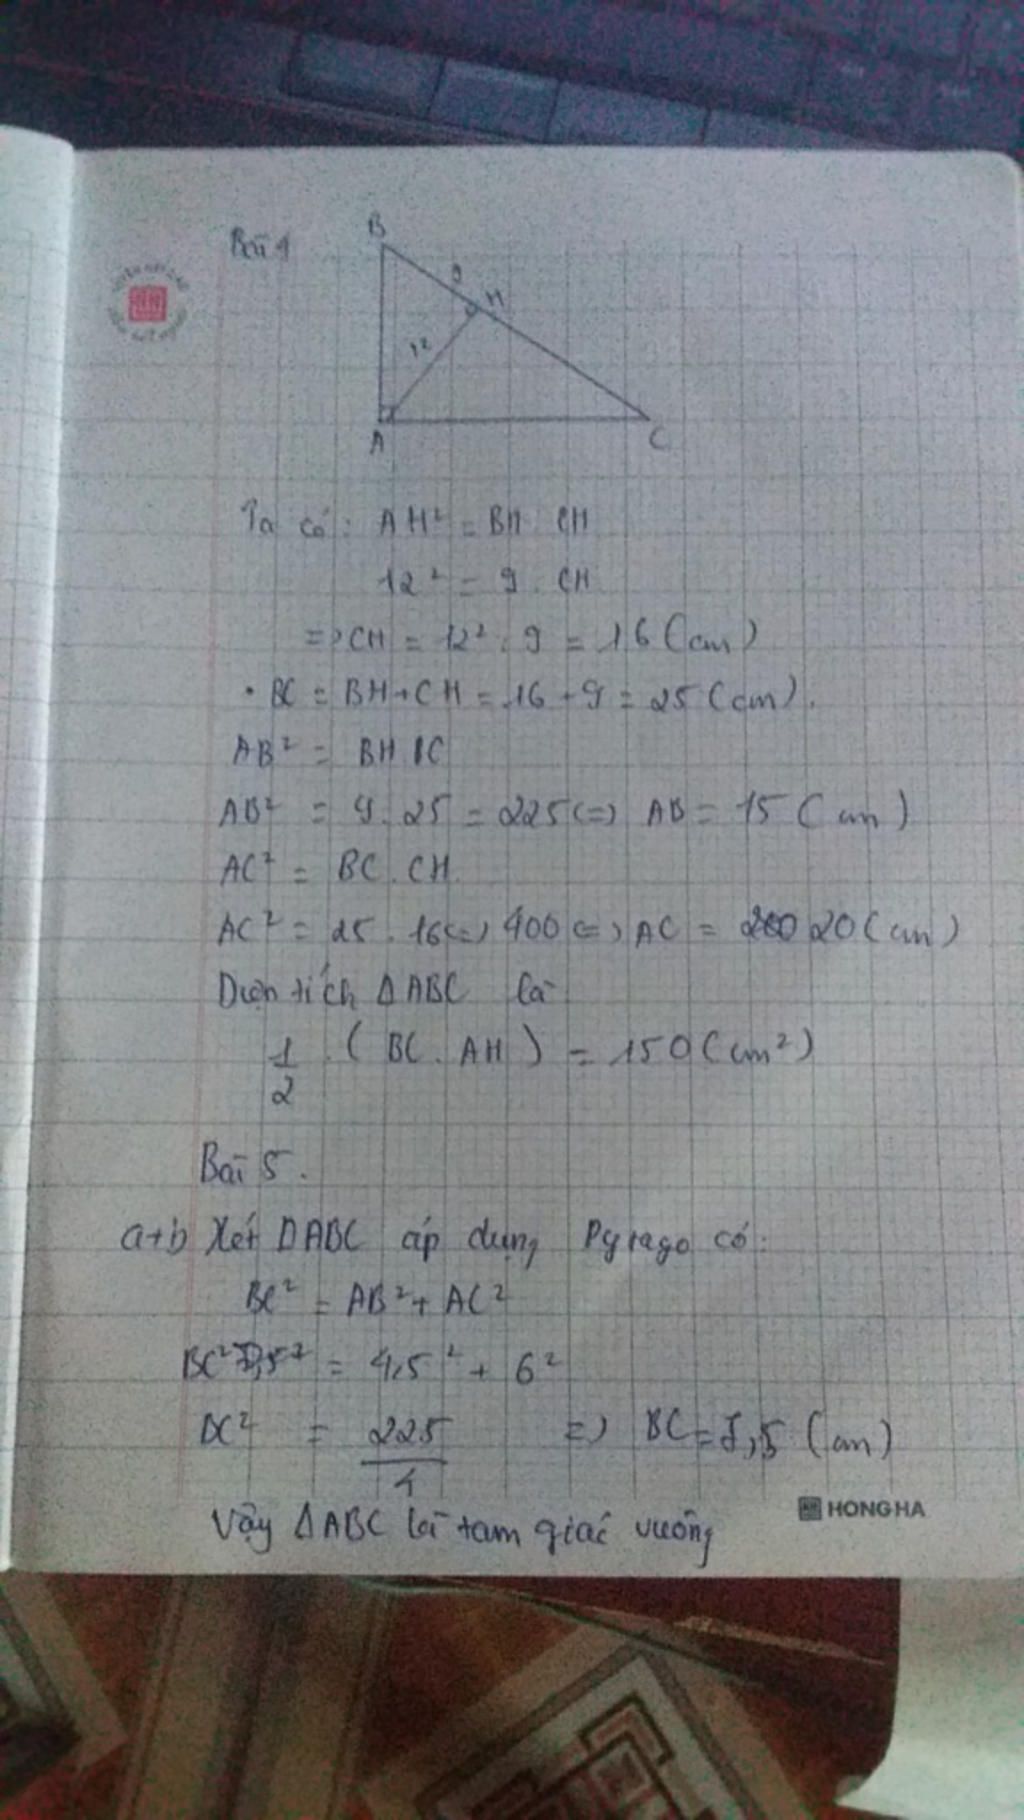 Bài 4
B
9
H
12
A
C
Ta có: AH² = BH . CH
12² = 9 . CH
=> CH = 12² : 9 = 16 (cm)
• BC = BH + CH = 16 + 9 = 25 (cm).
AB² = BH . BC
AB² = 9 . 25 = 225 <=> AB = 15 (cm)
AC² = BC . CH
AC² = 25 . 16 <=> 400 <=> AC = 20 (cm)
Diện tích ΔABC là
1/2 . (BC . AH) = 150 (cm²)
Bài 5.
a+b Xét ΔABC áp dụng Pytago có:
BC² = AB² + AC²
BC² 7,5² = 4,5² + 6²
BC² = 225/4 => BC = 7,5 (cm)
HONG HA
Vậy ΔABC là tam giác vuông